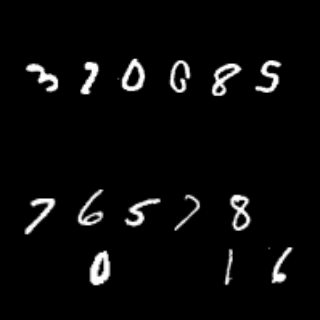 370085
76578
0 1 6